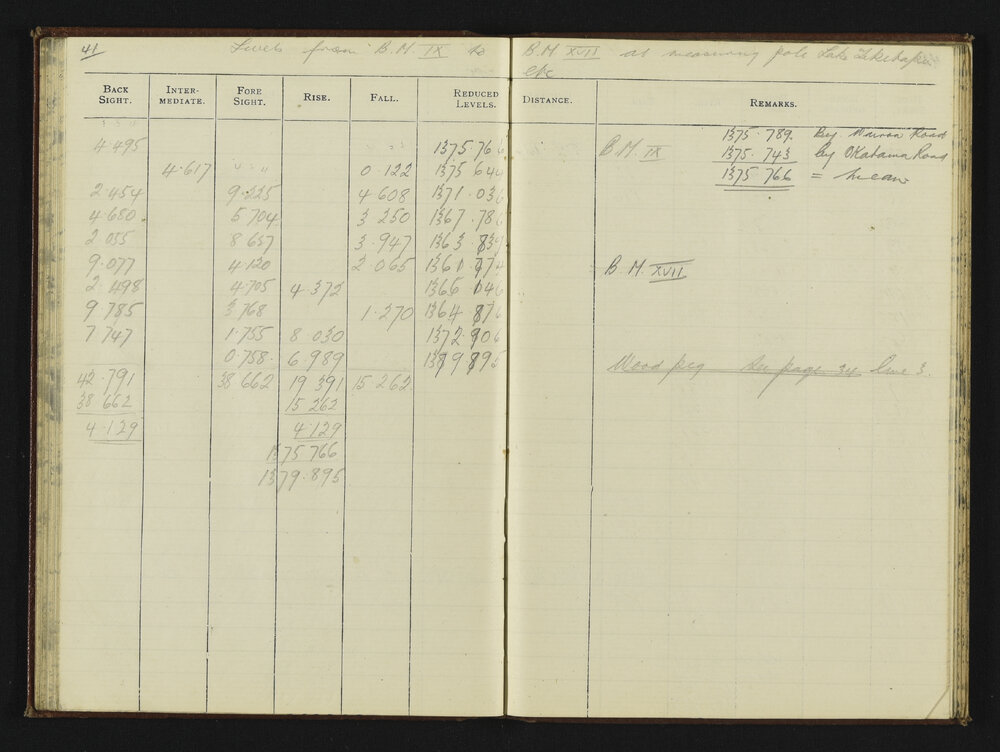 41 Levels from B.M. IX to B.M. XVII at measuring pole Lake Tikitapu
etc
BACK SIGHT. INTER-MEDIATE. FORE SIGHT. RISE. FALL. REDUCED LEVELS. DISTANCE. REMARKS.
1375.789. By Wairoa Road
4.495 1375.766 B.M. IX 1375.743 by Okatama Road
4.617 0.122 1375.644 1375.766 = Mean
2.454 9.225 4.608 1371.036
4.680 5.704 3.250 1367.786
2.055 8.637 3.947 1363.839
9.077 4.120 2.065 B.M. XVII
2.498 4.705 4.372 1366.146
9.785 3.768 1.270 1364.876
7.747 1.755 8.030 1372.906
0.758 6.989 1379.895 Wood peg See page 34 line 3.
42.791 38.662 19.391 15.262
38.662 15.262
4.129 4.129
1375.766
1379.895